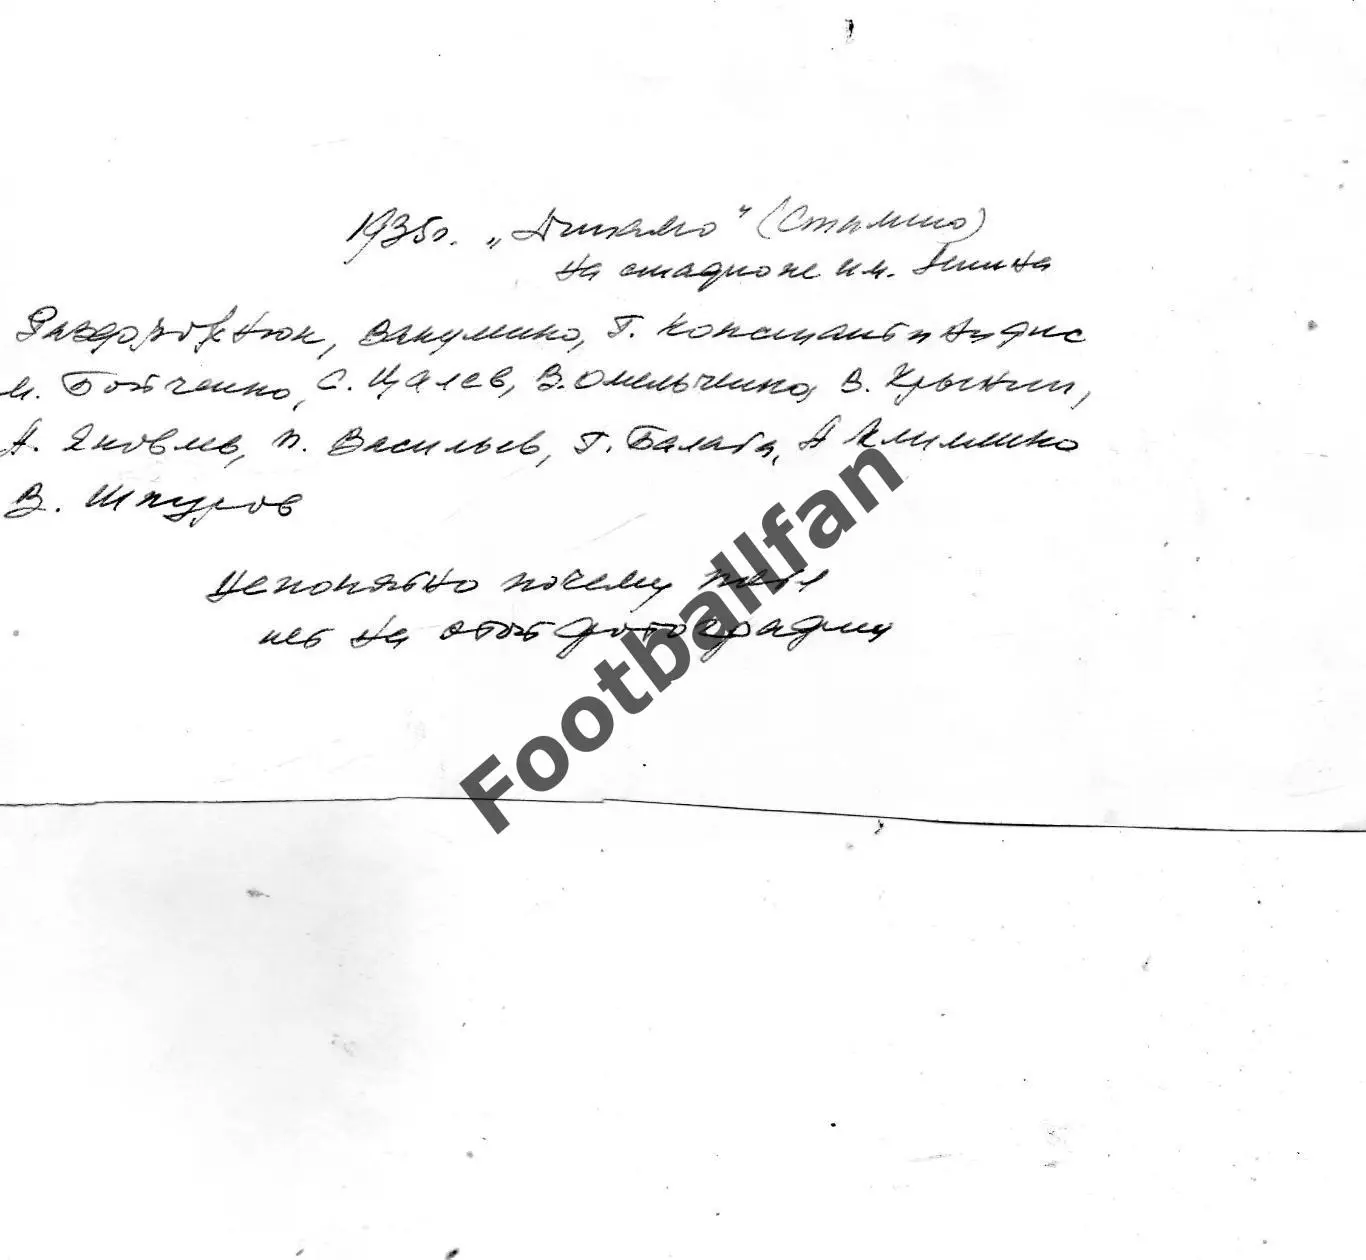 1935г. „Динамо" (Сталино)
на стадионе им. Ленина
Раздорожнюк, Вакуленко, Г. Константинидис
М. Бойченко, С. Цалев, В. Омельченко, В. Крынин,
А. Яковлев, П. Васильев, Г. Балаба, А Клименко
В. Шпуров
Непонятно почему тебя
нет на этой фотографии
Footballfan